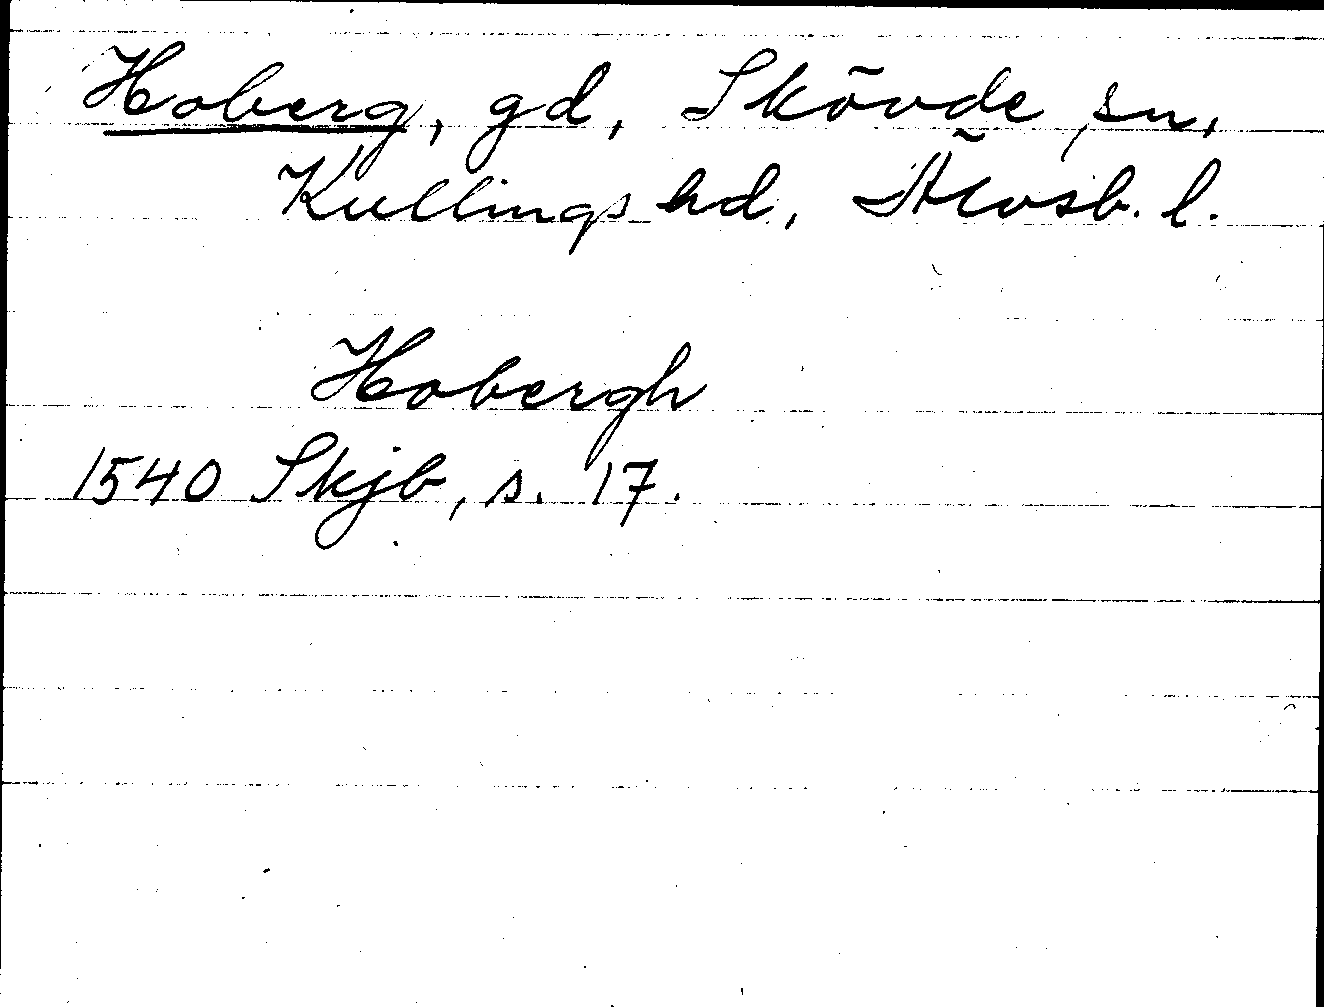 Hoberg, gd, Skövde sn,
Kullings hd, Älvsb. l.
Hobergh
1540 Skjb, s. 17.